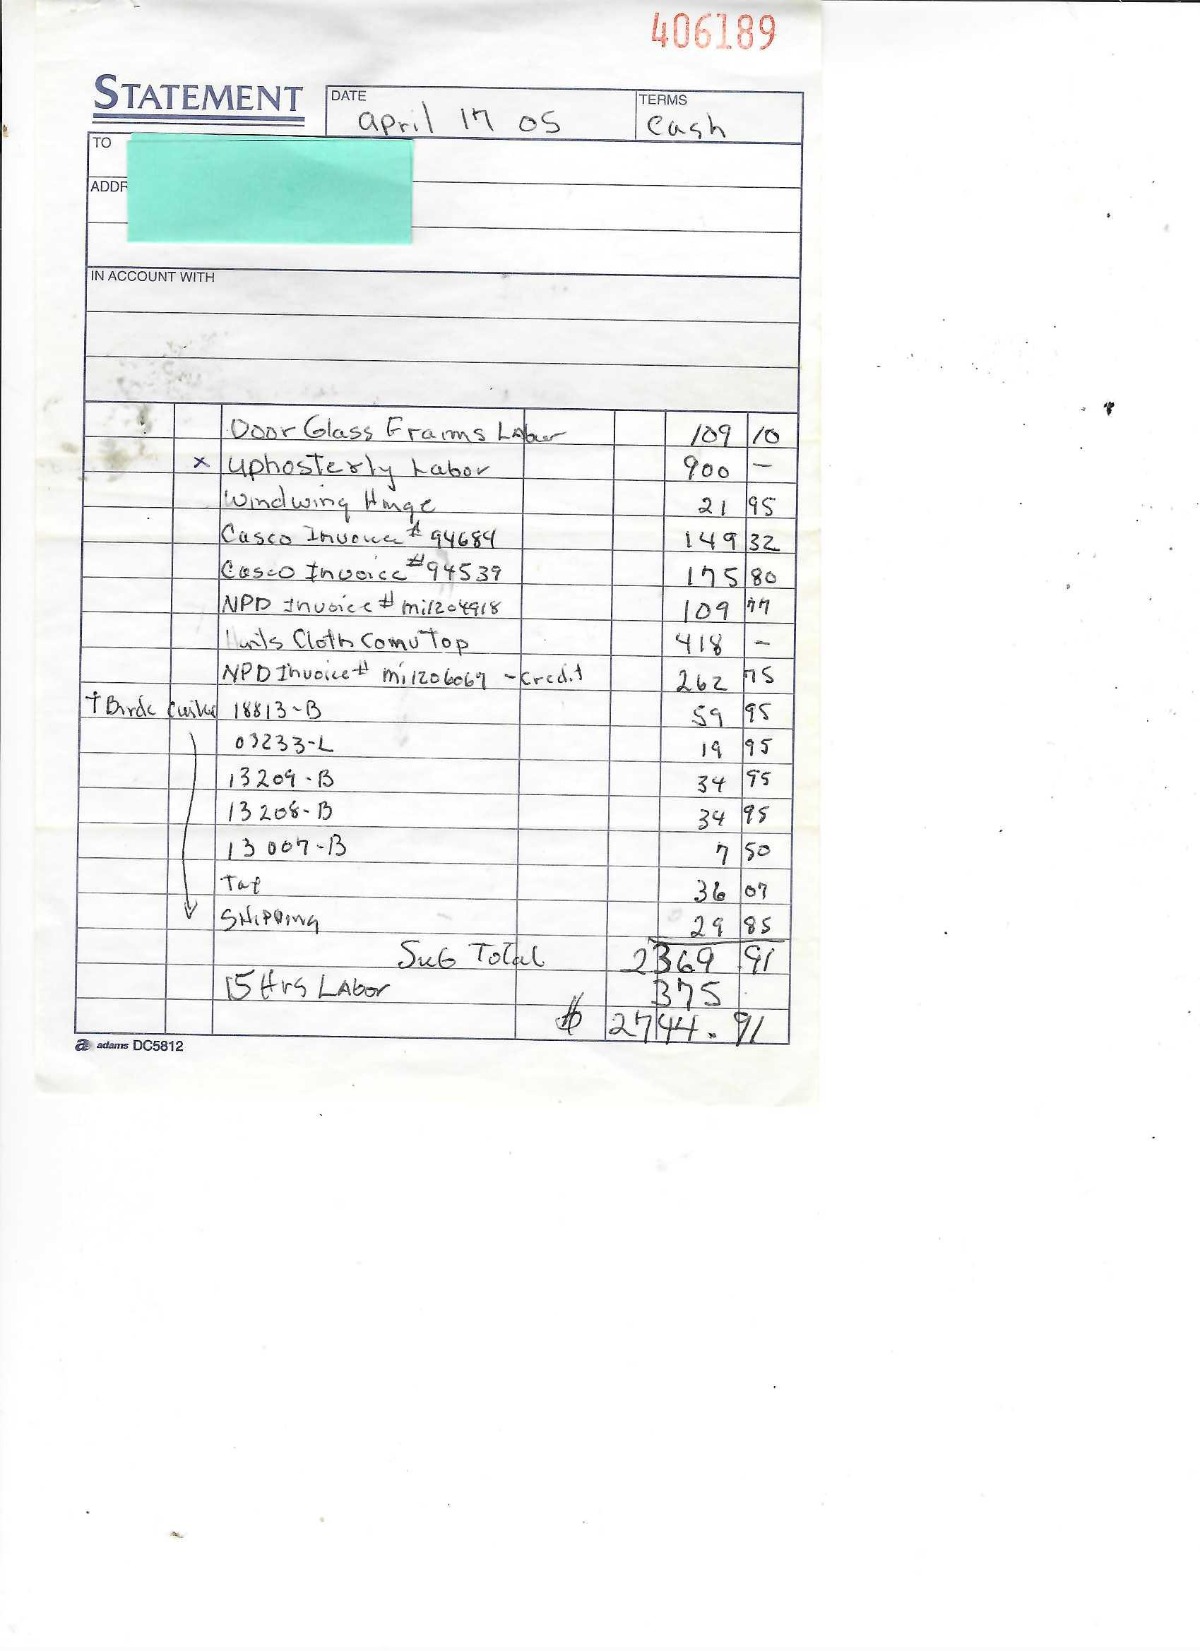 406189
STATEMENT
DATE April 17 05
TERMS Cash
TO
ADDR
IN ACCOUNT WITH
Door Glass Frams Labor 109 10
x Uphosterly Labor 900 —
Windwing Hinge 21 95
Casco Invoice # 94684 149 32
Casco Invoice #94539 175 80
NPD Invoice # mi1204918 109 77
Cloth Conv Top 418 —
NPD Invoice # mi1206067 - Credit 262 75
TBirds 18813-B 59 95
03233-L 19 95
13209-B 34 95
13208-B 34 95
13007-B 7 50
36 07
Shipping 29 85
Sub Total 2369 91
15 Hrs Labor 375
$ 2744.91
a adams DC5812